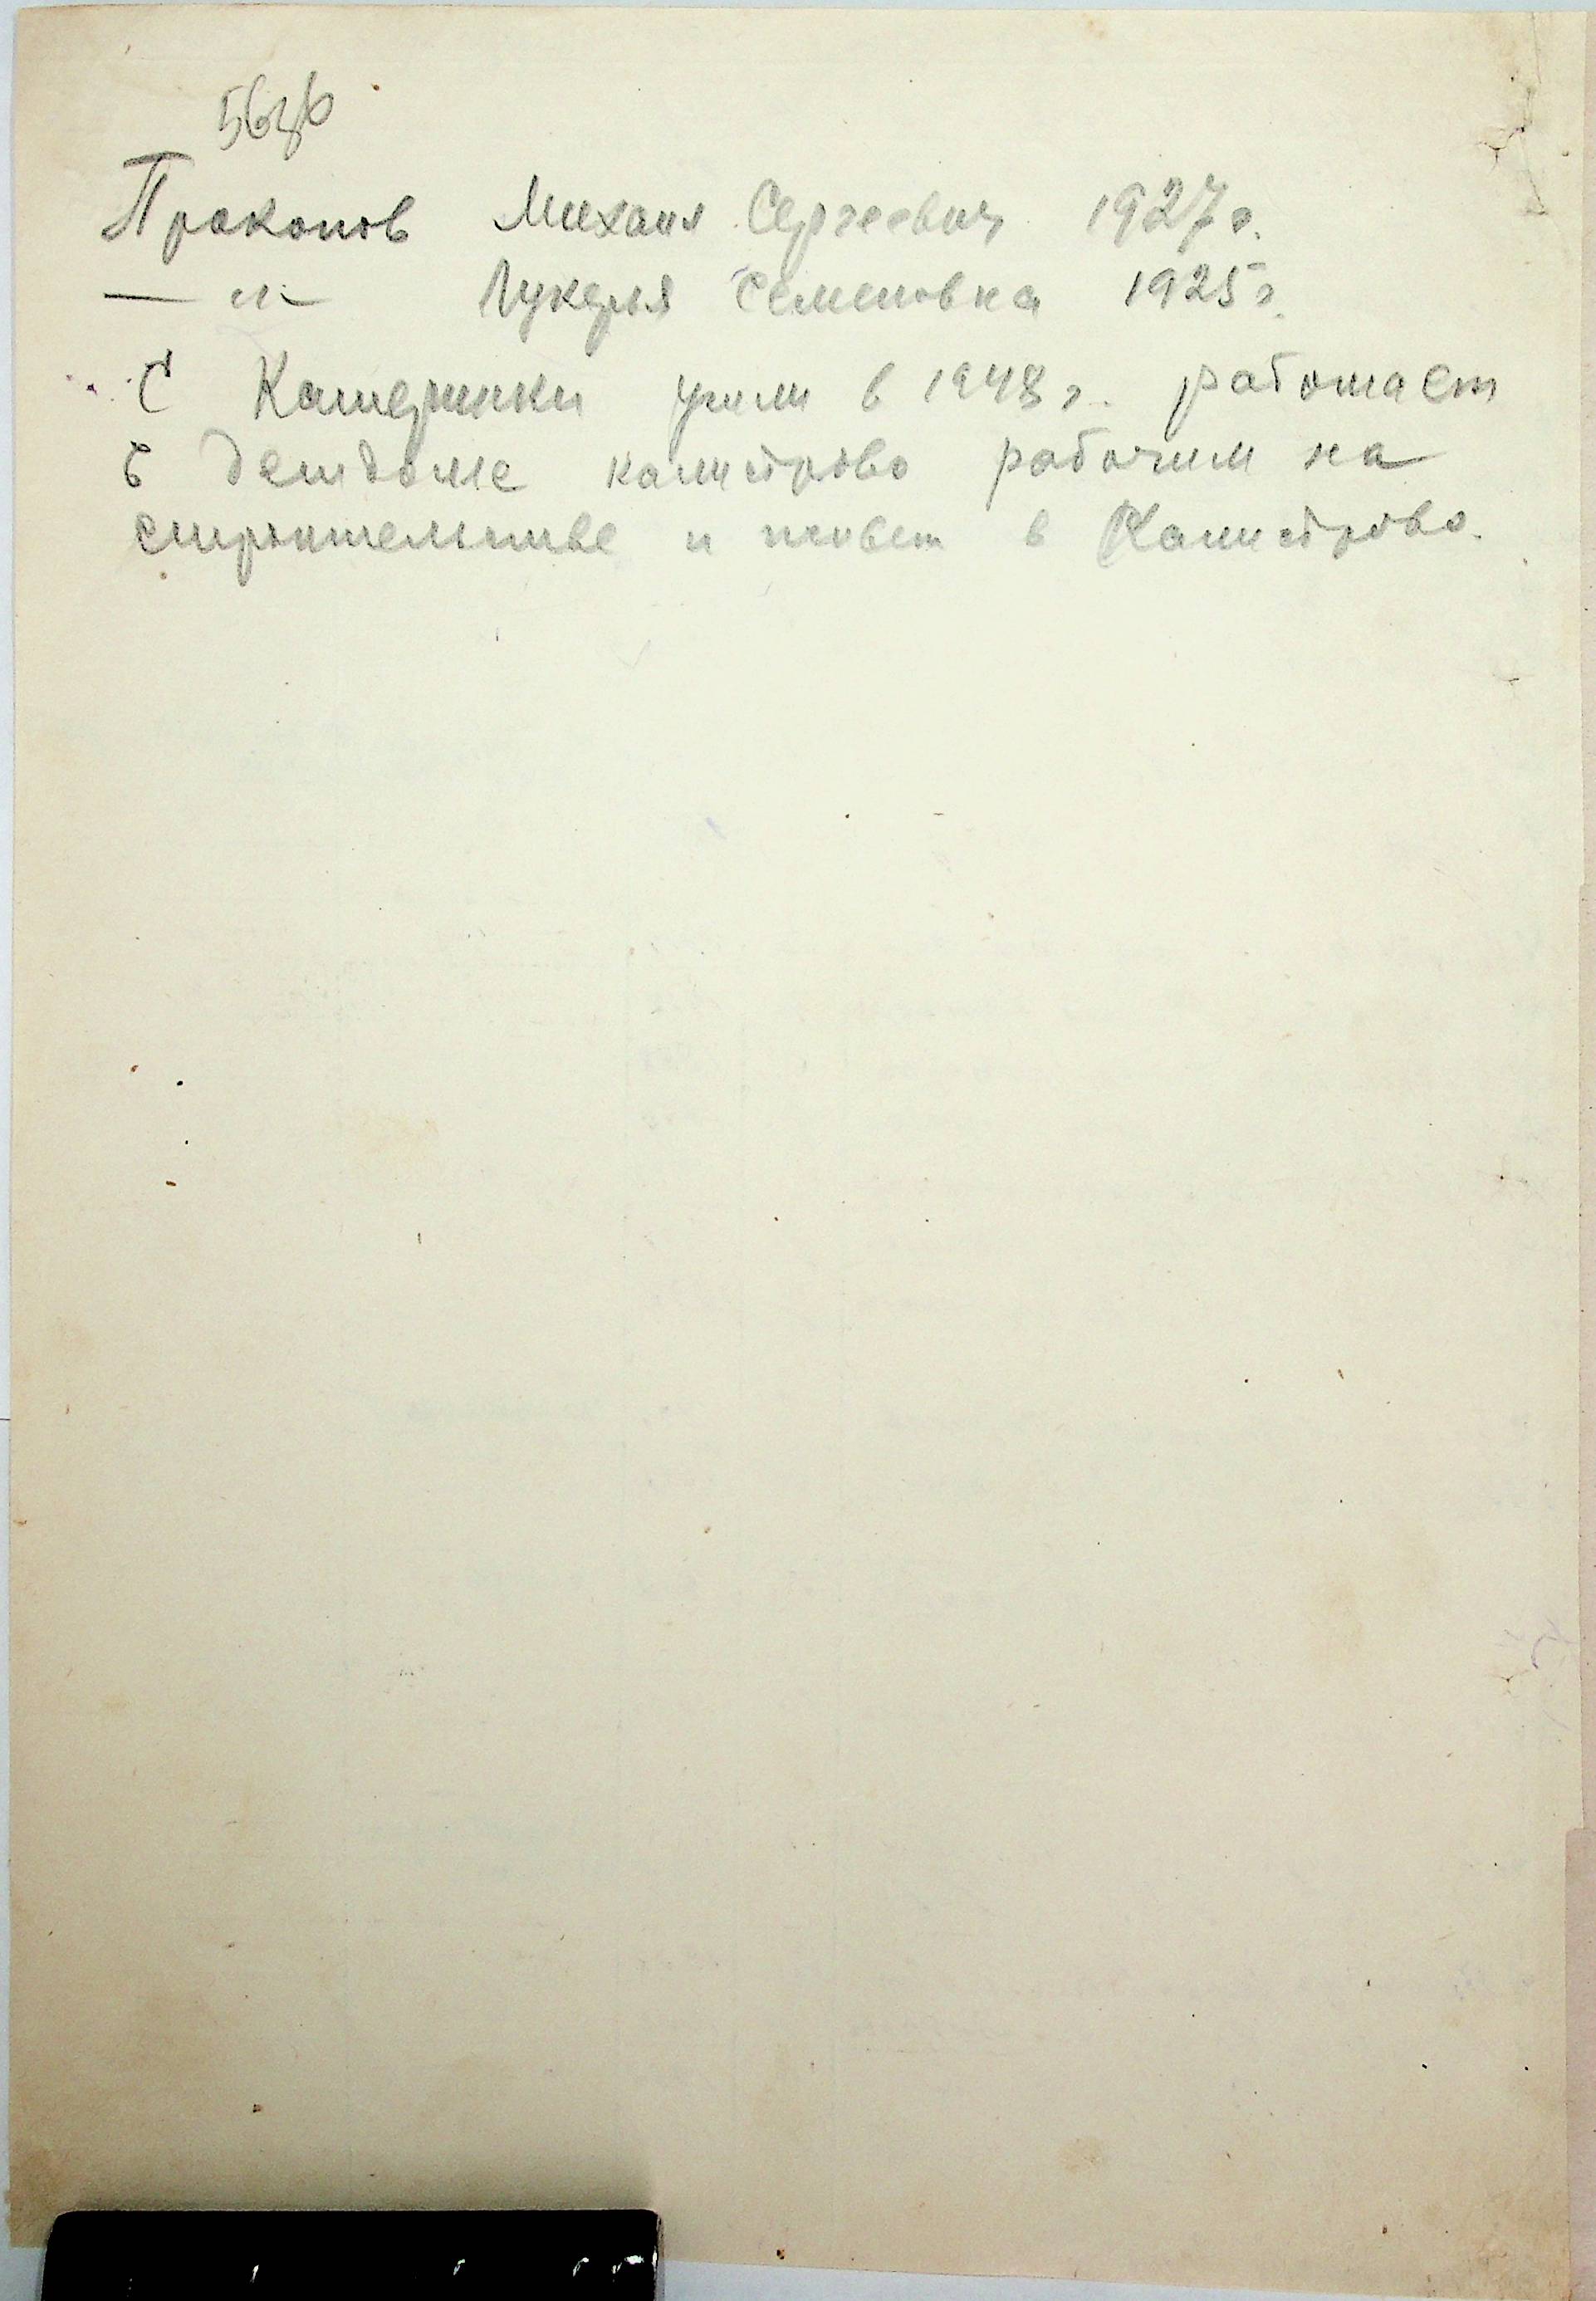 Прокопов Михаил Сергеевич 1927г.
— и — Лукерья Семеновна 1925г.
С Катеринки ушли в 1948г. работает
в детдоме калистрово рабочим на
строительстве и живет в Калистрово.